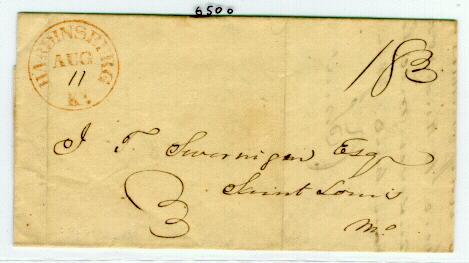 6500
HARDINSBURG
AUG
11
Ky.
18 3/4
J. T. Swearingen Esq
Saint Louis
Mo